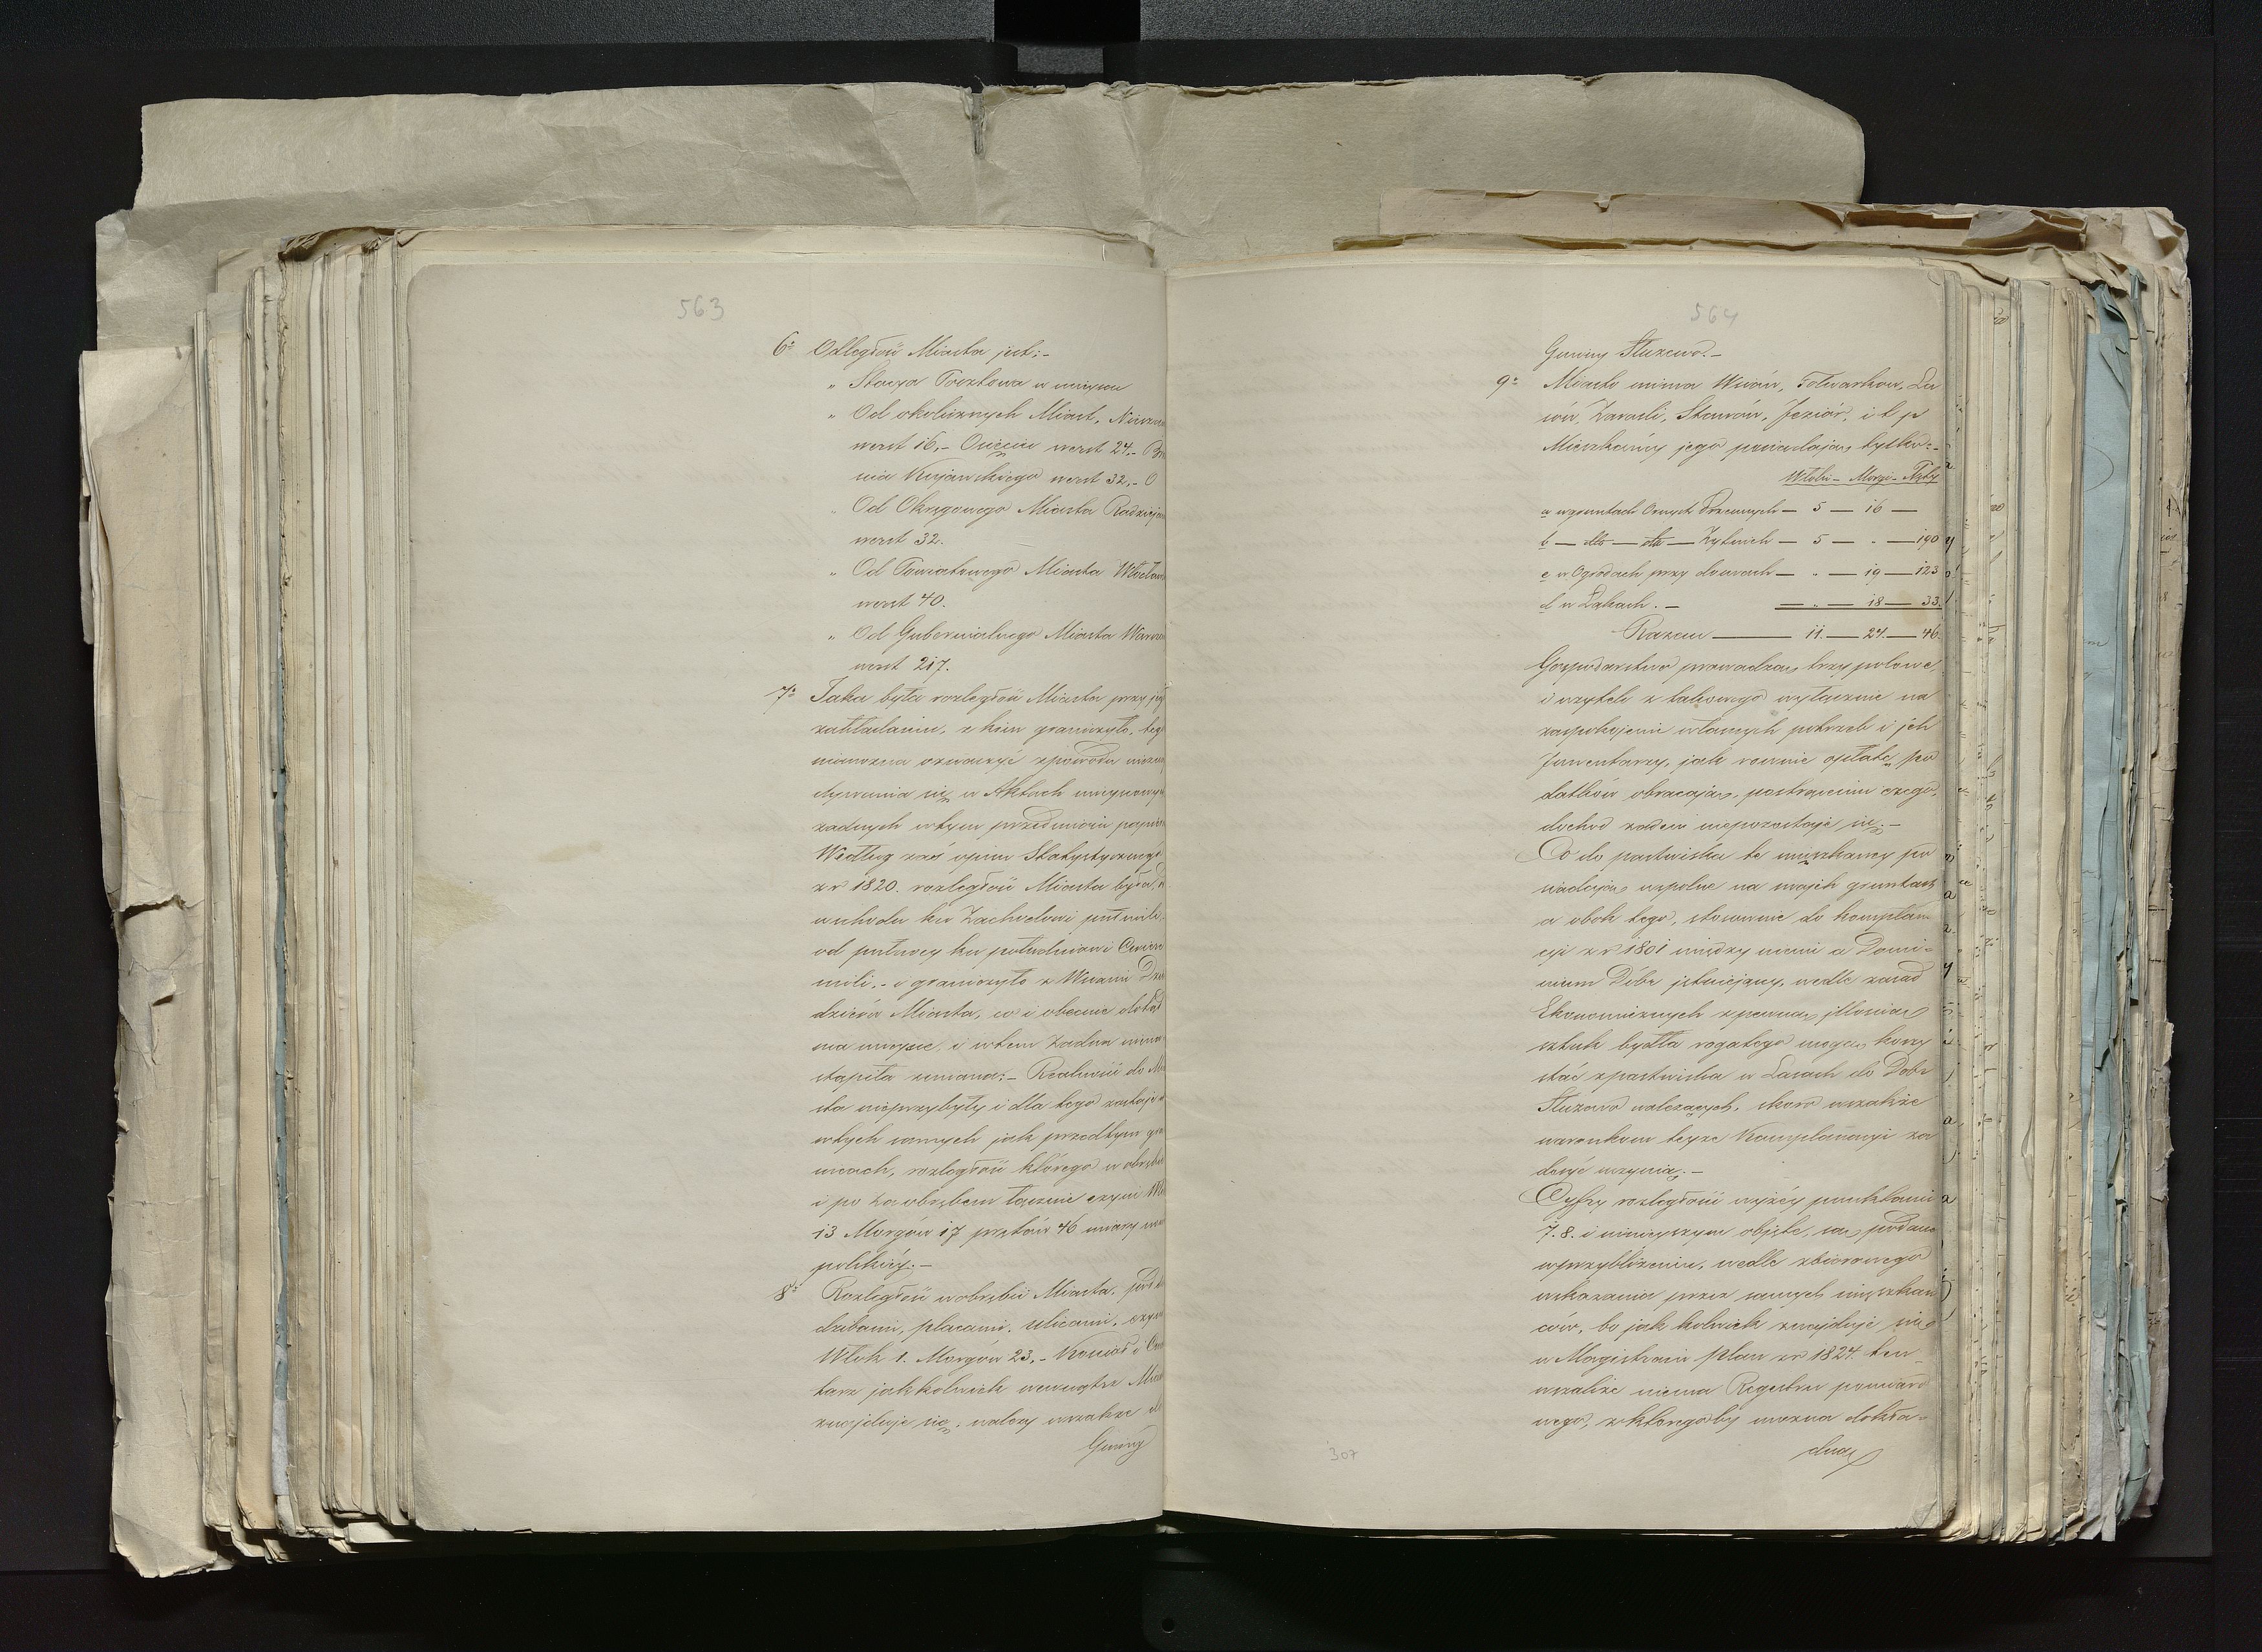 563
6o Odległość Miasta jest:-
„ Stacya Pocztowa w miejscu
„ Od okolicznych Miast, Niesza
werst 16,- Osięcin werst 24,- Brz
ścia Kujawskiego werst 32,- O
„ Od Okręgowego Miasta Radzieje
werst 32.
„ Od Powiatowego Miasta Włocław
werst 40.
„ Od Gubernialnego Miasta Warsz
werst 217.
7o Jaka była rozległość Miasta przy je
zakładaniu, z kim graniczyło, teg
niemożna oznaczyć zpowodu nieznaj
dywania się w Aktach miejscowych
żadnych wtym przedmiocie papier
Według zaś opisu Statystycznego
z r 1820. rozległość Miasta była,
wschodu ku Zachodowi pół mili
od północy ku południowi Cwierć
mili.- i graniczyło z Wsiami Dzie
dziców Miasta, co i obecnie dotąd
ma miejsce, i wtem żadna niena-
stąpiła zmiana:- Realność do Mia
sta nieprzybyły i dla tego zostaje w
wtych samych jak przedtym gra
nicach, rozległość którego w obrębie
i po za obrębem łącznie czyni Włó
13 Morgów 17 prętów 46 miary nowo
polskiéy.-
8o Rozległość wobrębie Miasta, pod sie
dzibami, placami, ulicami, czyni
Włok 1. Morgow 23,- Kościoł i Cmen
tarz jakkolwiek wewnątrz Miast
znajduje się, należy wszakże do
Gminy
564
Gminy Służewo.-
9o Miasto niema Wsiów, Folwarków, La
sów, Zarośli, Stawów, Jeziór, i t p
Mieszkańcy jego posiadają tylko:-
Włóki - Morgi - Pręty
a w gruntach Ornych Pszennych — 5 — 16 —
b — dto — dto — Żytnich — 5 — „ — 190
c w Ogrodach przy domach — „ — 19 — 123
d w Łąkach. — — „ — 18 — 33.
Razem — 11. — 24. — 46.
Gospodarstwo prowadzą trzy polowe,
i użytek z takowego wyłącznie na
zaspokojenie własnych potrzeb i ich
Inwentarzy, jak rownie opłatę po
datków obracają, postrąceniu czego,
dochod żaden niepozostaje się.-
Co do pastwiska te mięszkańcy po
siadają wspolne na swojch gruntach
a obok tego, stosownie do komplana
cyi z r 1801 między niemi a Domi-
nium Dóbr jstniejącey, wedle zasad
Ekonomicznych z pewną jllością
sztuk bydła rogatego mogą korzy
stać z pastwiska w Lasach do Dobr
Służewo należących, skoro wszakże
warunkom teyże Komplanacyi za
dosyć uczynią.-
Cyfry rozległości wyżéy punktami
7. 8. i niniejszym objęte, są podane
wprzybliżeniu, wedle zbiorowego
wskazania przez samych mięszkań
ców, bo jak kolwiek znajduje się
w Magistracie plan z r 1824. ten
wszakże niema Regestru pomiaro
wego, z któregoby można dokła-
dną
307